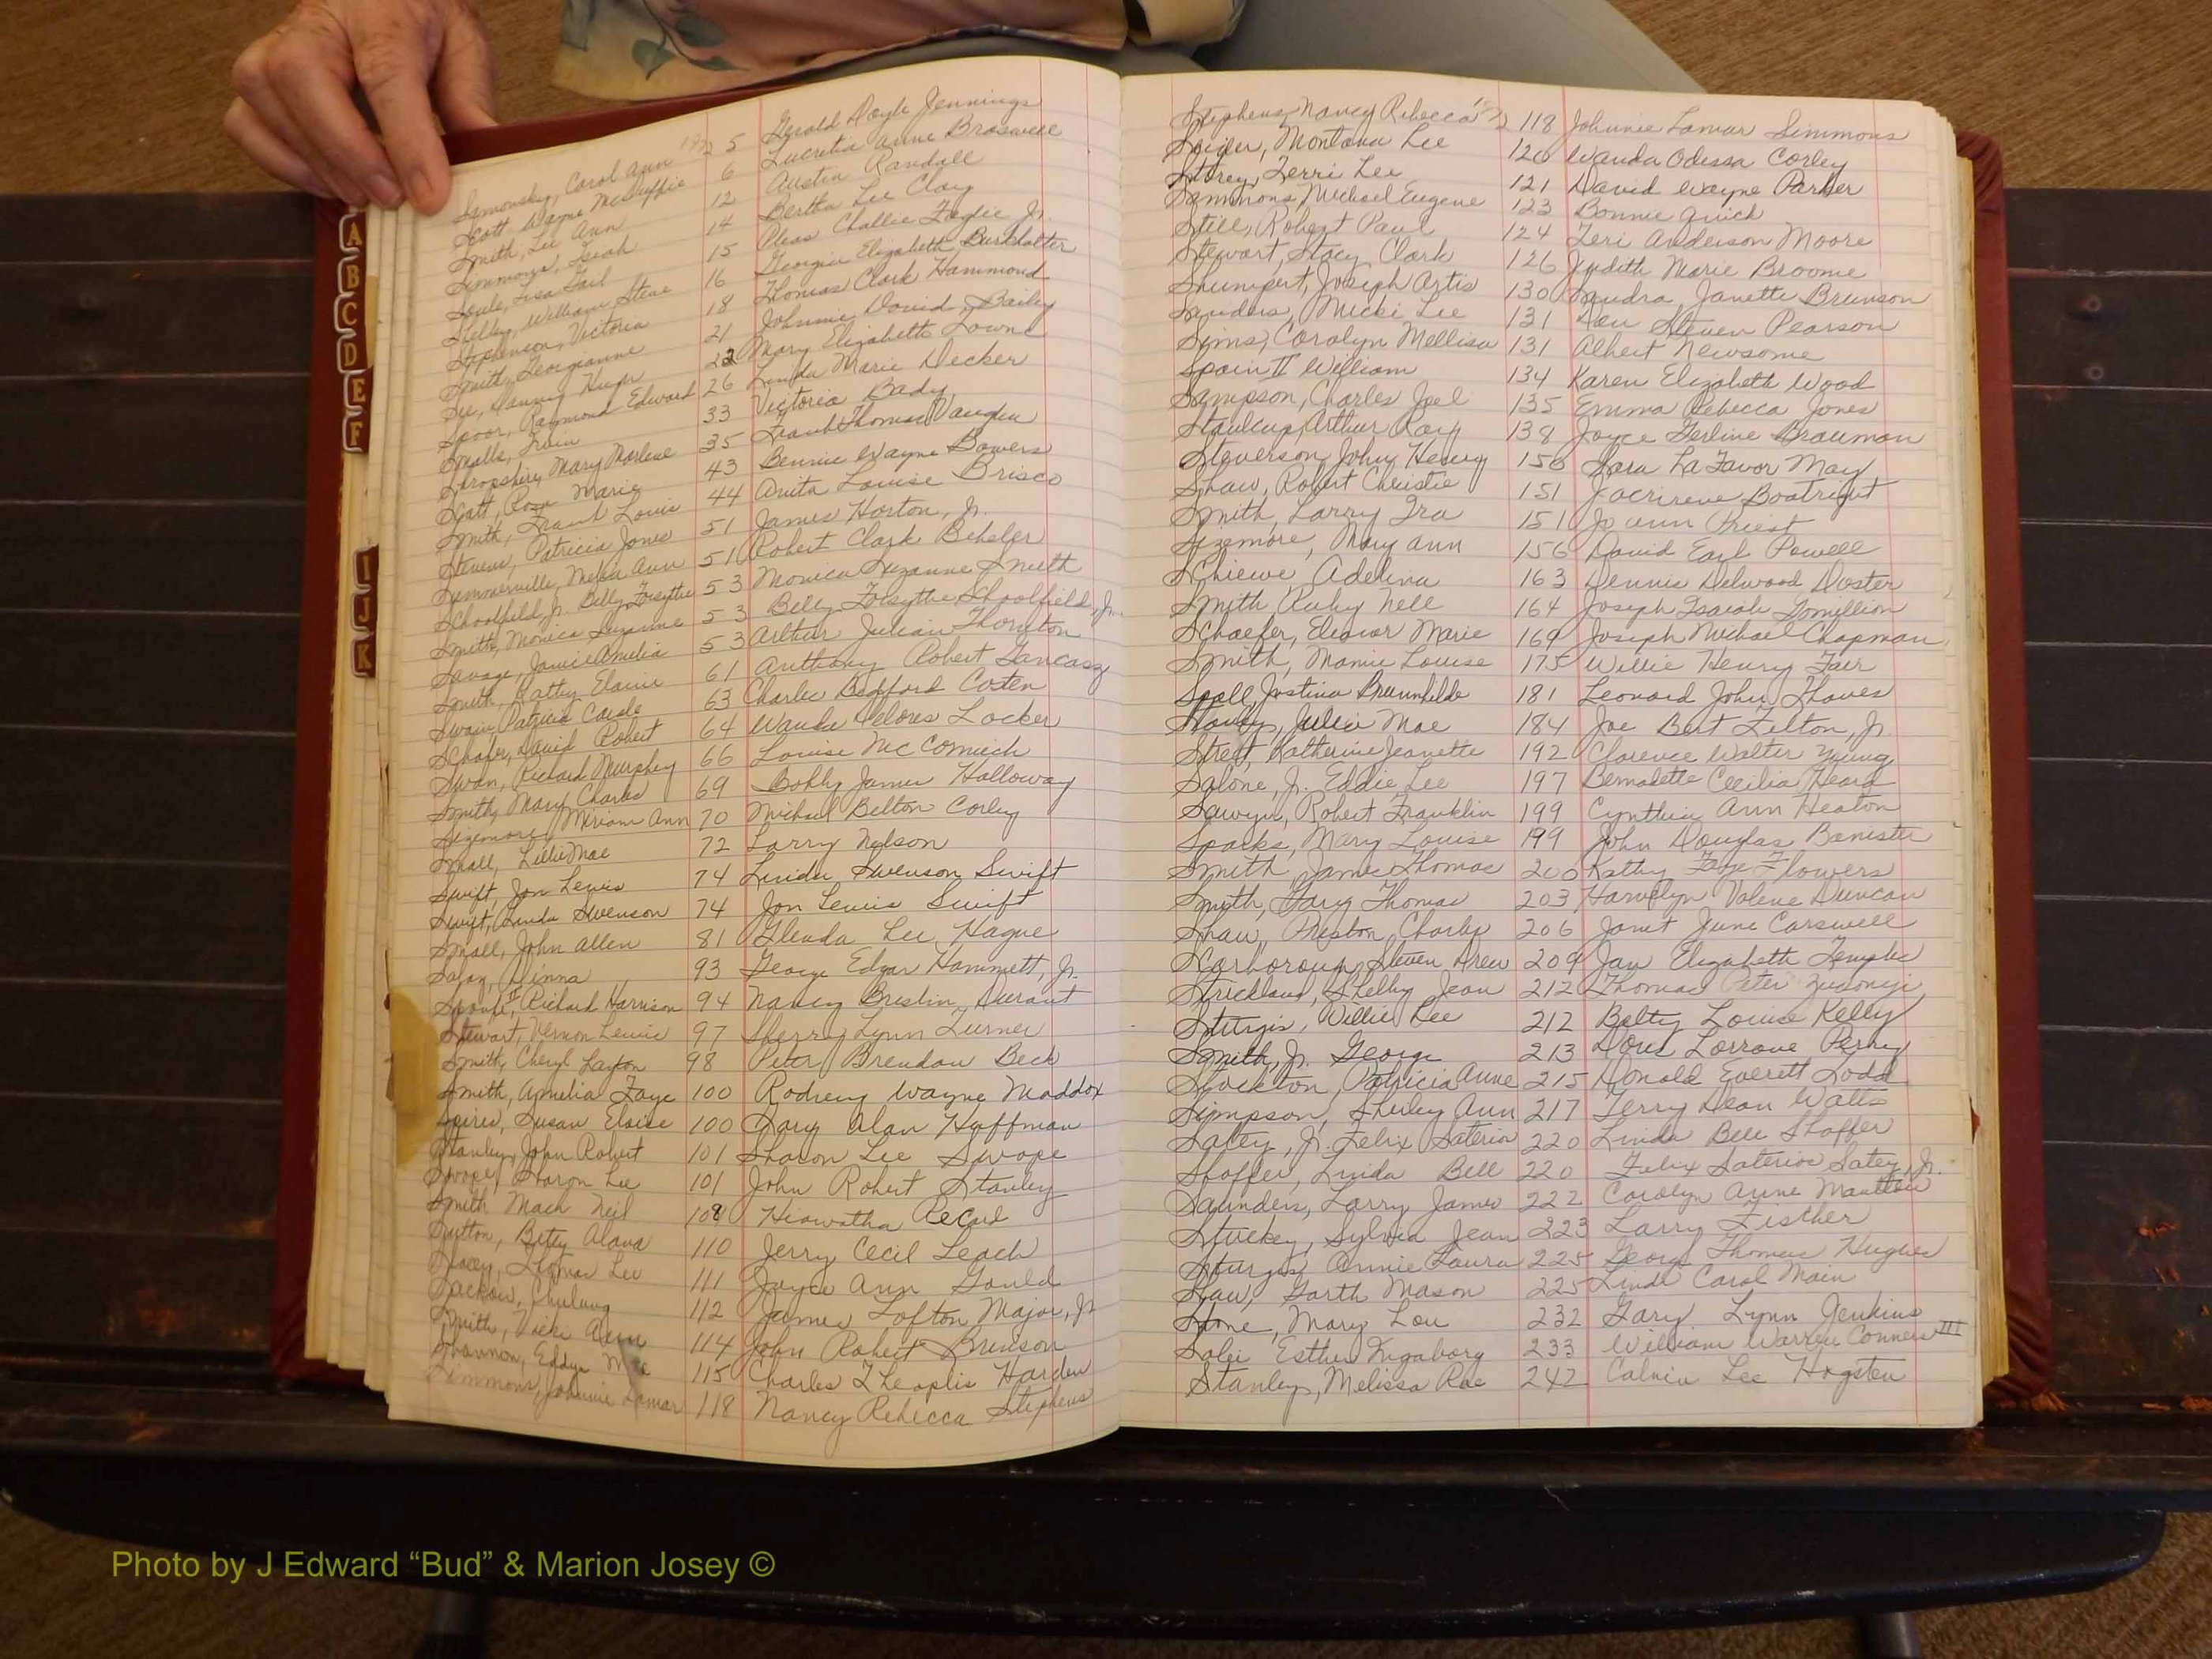 Semonsky, Carol Ann 1972 5 Gerald Doyle Jennings
Scott Wayne McDuffie 6 Lucretia Anne Braswell
Smith, Lee Ann 12 Austin Randall
Simmons, Isiah 14 Bertha Lee Clay
Soule, Lisa Gail 15 Pleas Challie Faglie Jr.
Selby, William Steve 16 Georgia Elizabeth Burkhalter
Stephenson, Victoria 18 Thomas Clark Hammond
Smith, Georgianne 21 Johnnie David Bailey
See, Manning Hugh 22 Mary Elizabeth Towne
Spoor, Raymond Edward 26 Linda Marie Decker
Smalls, 33 Victoria Bady
Shropshire Mary Marlene 35 Frank Thomas Vaughn
Scott, Rosa Marie 43 Bennie Wayne Bowers
Smith, Frank Louis 44 Anita Louise Brisco
Stevens, Patricia Jones 51 James Horton, Jr.
Summerville, Melba Ann 51 Robert Clark Beheler
Schoolfield Jr. Billy Forsythe 53 Monica Suzanne Smith
Smith, Monica Suzanne 53 Billy Forsythe Schoolfield, Jr.
Savage, Janie Amelia 53 Arthur Julian Thornton
Smith, Kathy Elaine 61 Anthony Robert
Swain Patricia Carole 63 Charles Bedford Coten
Schafer, David Robert 64 Wanda Delores Locker
Swan, Richard Murphey 66 Louise McCormick
Smith, Mary Charles 69 Bobby James Holloway
Sizemore, Miriam Ann 70 Michael Belton Corley
Small, Lillie Mae 72 Larry Nelson
Swift, Jon Lewis 74 Linda Swenson Swift
Swift, Linda Swenson 74 Jon Lewis Swift
Small, John Allen 81 Glenda Lee Hague
Dinna 93 George Edgar Hammett, Jr.
Richard Harrison 94 Nancy Breslin Durant
Stewart, Vernon Lewis 97 Sherry Lynn Turner
Smith, Cheryl Layton 98 Peter Brendan Beck
Smith, Amelia Faye 100 Rodney Wayne Maddox
Spires, Susan Eloise 100 Gary Alan Huffman
Stanley, John Robert 101 Sharon Lee Swope
Swope, Sharon Lee 101 John Robert Stanley
Smith Mack Neil 108 Hiawatha
Sutton, Betty Alana 110 Jerry Cecil Leach
Stacey, Thomas Lee 111 Joyce Ann Gould
112 James Lofton Major, Jr
Smith, Vicki Ann 114 John Robert Brunson
Shannon, Eddye Mae 115 Charles Theoplis Harden
Simmons, Johnnie Lamar 118 Nancy Rebecca Stephens
Stephens, Nancy Rebecca 1972 118 Johnnie Lamar Simmons
Montana Lee 120 Wanda Odessa Corley
Storey, Terri Lee 121 David Wayne Parker
Sammons Michael Eugene 123 Bonnie Quick
Still, Robert Paul 124 Teri Anderson Moore
Stewart, Stacy Clark 126 Judith Marie Broome
Shumpert, Joseph Artis 130 Sandra Janette Brunson
Sanders, Micki Lee 131 Don Steven Pearson
Sims, Carolyn Mellisa 131 Albert Newsome
Spain II William 134 Karen Elizabeth Wood
Sampson, Charles Joel 135 Emma Rebecca Jones
Stalcup, Arthur Ray 138 Joyce Ferline Brauman
Steverson John Henry 150 Sara LaFavor May
Shaw, Robert Christie 151 Boatright
Smith, Larry Ira 151 Jo Ann Priest
Sizemore, Mary Ann 156 David Earl Powell
Schiewe Adelina 163 Dennis Delwood Doster
Smith Ruby Nell 164 Joseph Isaiah Gomillion
Schaefer, Eleanor Marie 169 Joseph Michael Chapman
Smith, Mamie Louise 175 Willie Henry Fair
Spall Justina Brunnhilde 181 Leonard John Thaves
Stanley, Julia Mae 184 Joe Bert Felton, Jr.
Street, Katherine Jeanette 192 Clarence Walter Young
Salone, Jr. Eddie Lee 197 Bernadette Cecilia Heard
Sawyer, Robert Franklin 199 Cynthia Ann Heaton
Sparks, Mary Louise 199 John Douglas Banister
Smith James Thomas 200 Kathy Faye Flowers
Smith, Gary Thomas 203 Harvelyn Valene Duncan
Shaw, Preston Charles 206 Janet June Carswell
Scarborough, Steven Drew 209 Jan Elizabeth Temples
Strickland, Shelby Jean 212 Thomas Peter
Sturgis, Willie Lee 212 Betty Louise Kelly
Smith, Jr. George 213 Doris Lorrane Perry
Stockton, Patricia Anne 215 Donald Everett Todd
Simpson, Shirley Ann 217 Terry Dean Watts
Satey, Jr. Felix Saterios 220 Linda Bell Shaffer
Shaffer, Linda Bell 220 Felix Saterios Satey, Jr.
Saunders, Larry James 222 Carolyn Anne
Stuckey, Sylvia Jean 223 Larry Fisther
Sturgis Annie Laura 225 George Thomas Hughes
Shaw, Garth Mason 225 Linda Carol Main
Stone, Mary Lou 232 Gary Lynn Jenkins
Esther Ingaborg 233 William Warren Conners III
Stanley, Melissa Rae 242 Calvin Lee Hogsten
A
B
C
D
E
F
I
J
K
Photo by J Edward “Bud” & Marion Josey ©